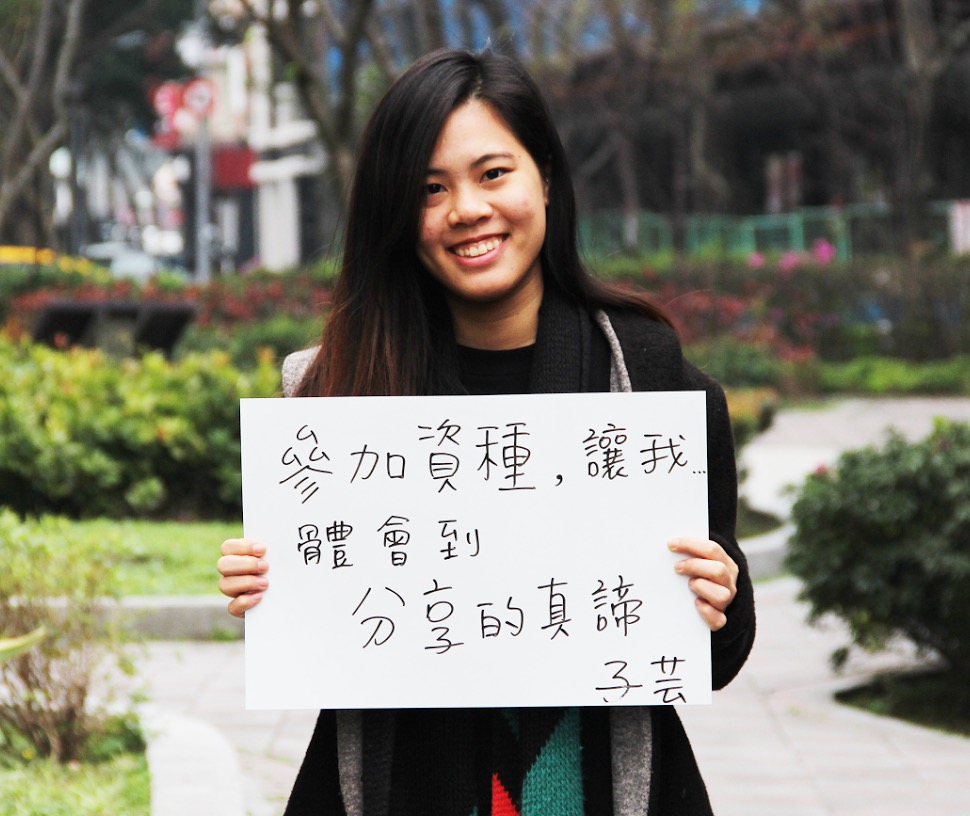 參加資種，讓我...
體會到
分享的真諦
子芸